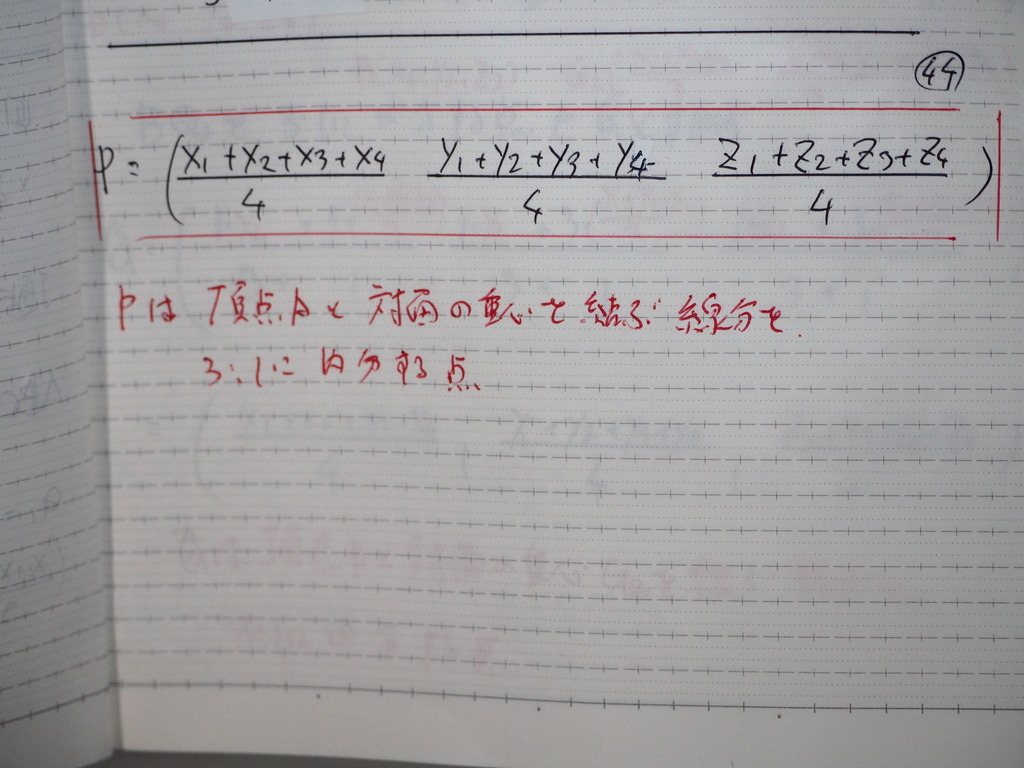 44
P = ( x1+x2+x3+x4 / 4  y1+y2+y3+y4 / 4  z1+z2+z3+z4 / 4 )
Pは 頂点Aと 対面の重心を結ぶ 線分を
3:1に内分する点